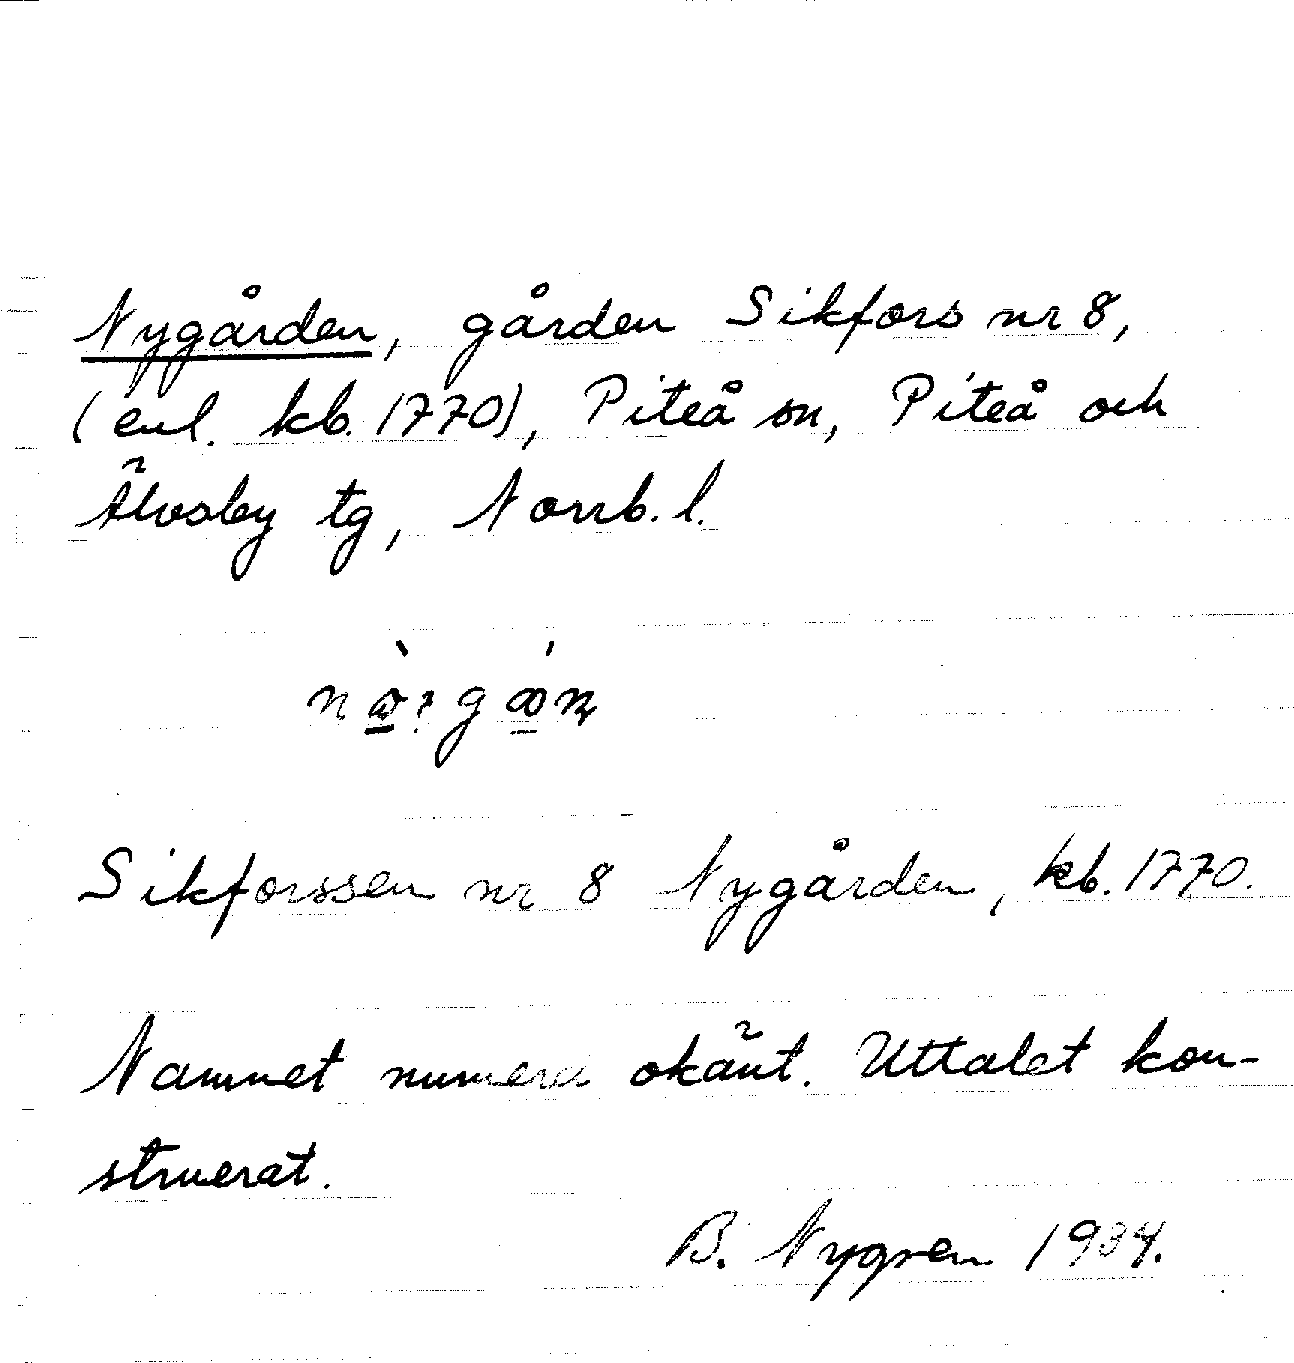 Nygården, gården Sikfors nr 8,
(enl. kb. 1770), Piteå sn, Piteå och
Älvsby tg, Norrb. l.
Sikforssen nr 8 Nygården, kb. 1770.
Namnet numera okänt. Uttalet kon-
struerat.
B. Nygren 1934.